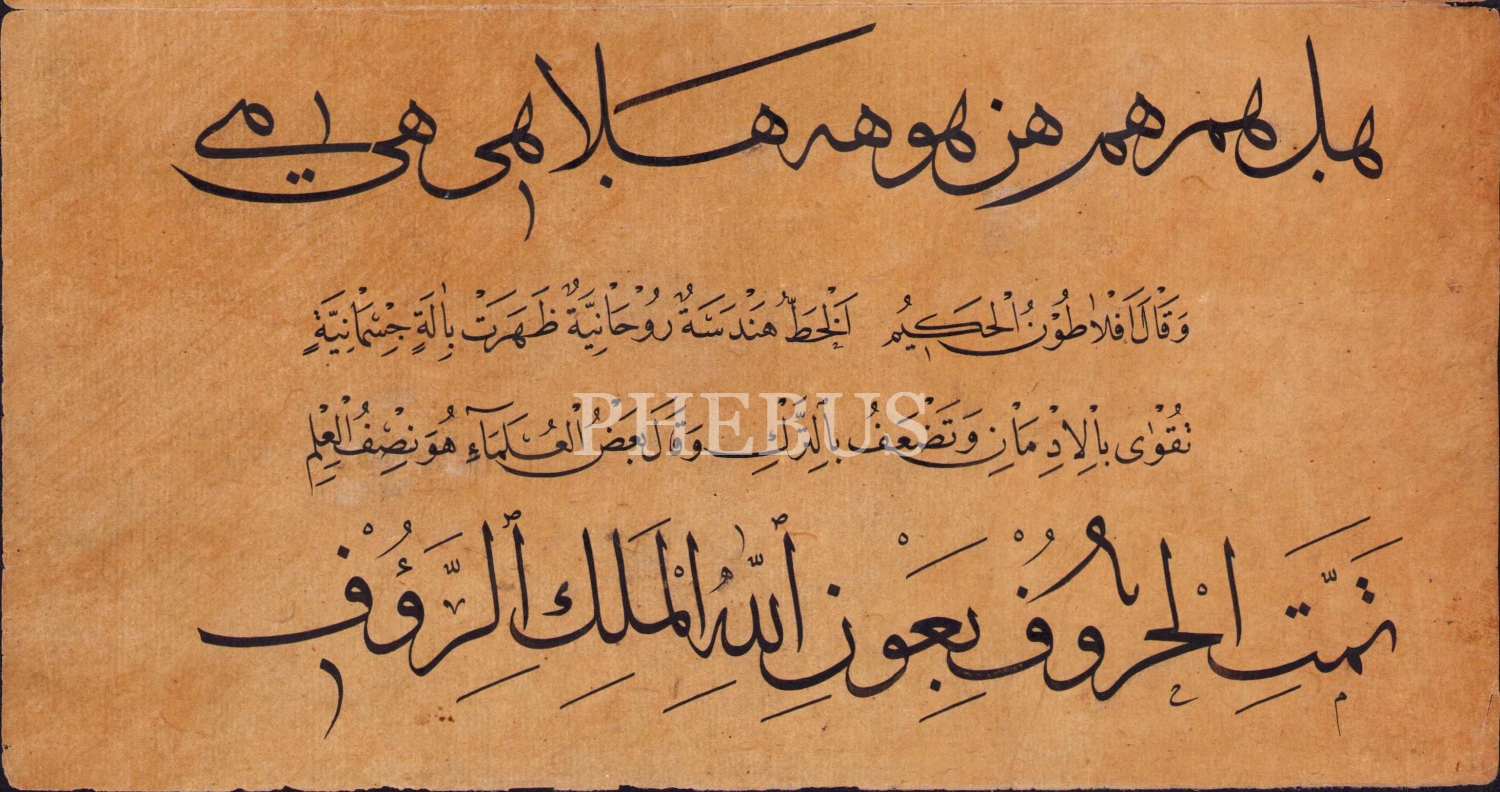 هل هم هم هن هو هه ها هلا هى هى ے
وَقَالَ اَفْلَاطُوْنُ الْحَكِيْمُ اَلْخَطُّ هَنْدَسَةٌ رُوْحَانِيَّةٌ ظَهَرَتْ بِاٰلَةٍ جِسْمَانِيَّةٍ
تَقْوٰى بِالْاِدْمَانِ وَتَضْعَفُ بِالتَّرْكِ وَقَالَ بَعْضُ الْعُلَمَاءِ هُوَ نِصْفُ الْعِلْمِ
PHEBUS
تَمَّتِ الْحُرُوْفُ بِعَوْنِ ٱللّٰهِ الْمَلِكِ ٱلرَّؤُفْ